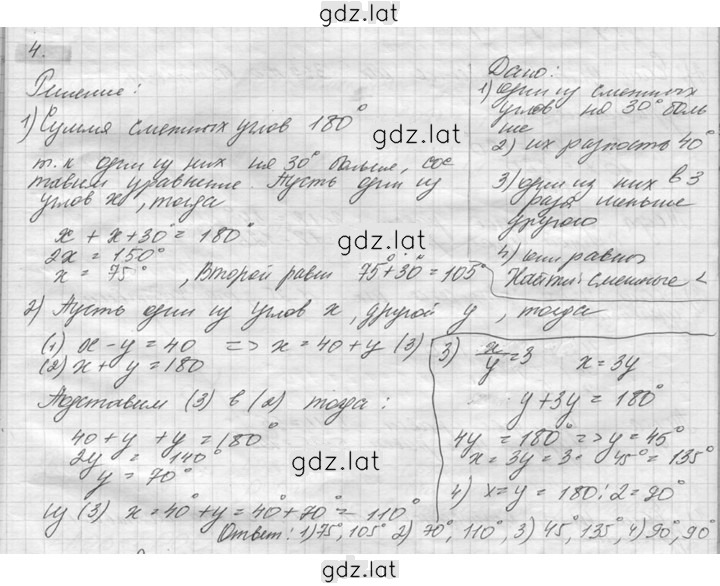 gdz.lat
4.
Решение:
1) Сумма смежных углов 180°
gdz.lat
т.к один из них на 30° больше, сос
тавим уравнение. Пусть один из
углов x, тогда
x + x+30°= 180°
gdz.lat
2x = 150°
x = 75°, Второй равен 75°+30°=105°
Дано:
1) один из смежных
углов на 30° боль
ше
2) их разность 40°
3) один из них в 3
раза меньше
другого
4) они равны
Найти: смежные <
2) Пусть один из углов x, другой y, тогда
(1) x - y = 40 => x = 40+y (3)
(2) x + y = 180
gdz.lat
Подставим (3) в (2) тогда:
40+y +y = 180°
2y = 140°
gdz.lat
y = 70°
Из (3) x = 40+y = 40+70°= 110°
3) x/y = 3 x = 3y
y + 3y = 180°
4y = 180° => y = 45°
x = 3y = 3· 45° = 135°
4) x=y = 180:2=90°
Ответ: 1) 75°, 105° 2) 70°, 110°, 3) 45°, 135°, 4) 90°, 90°
gdz.lat